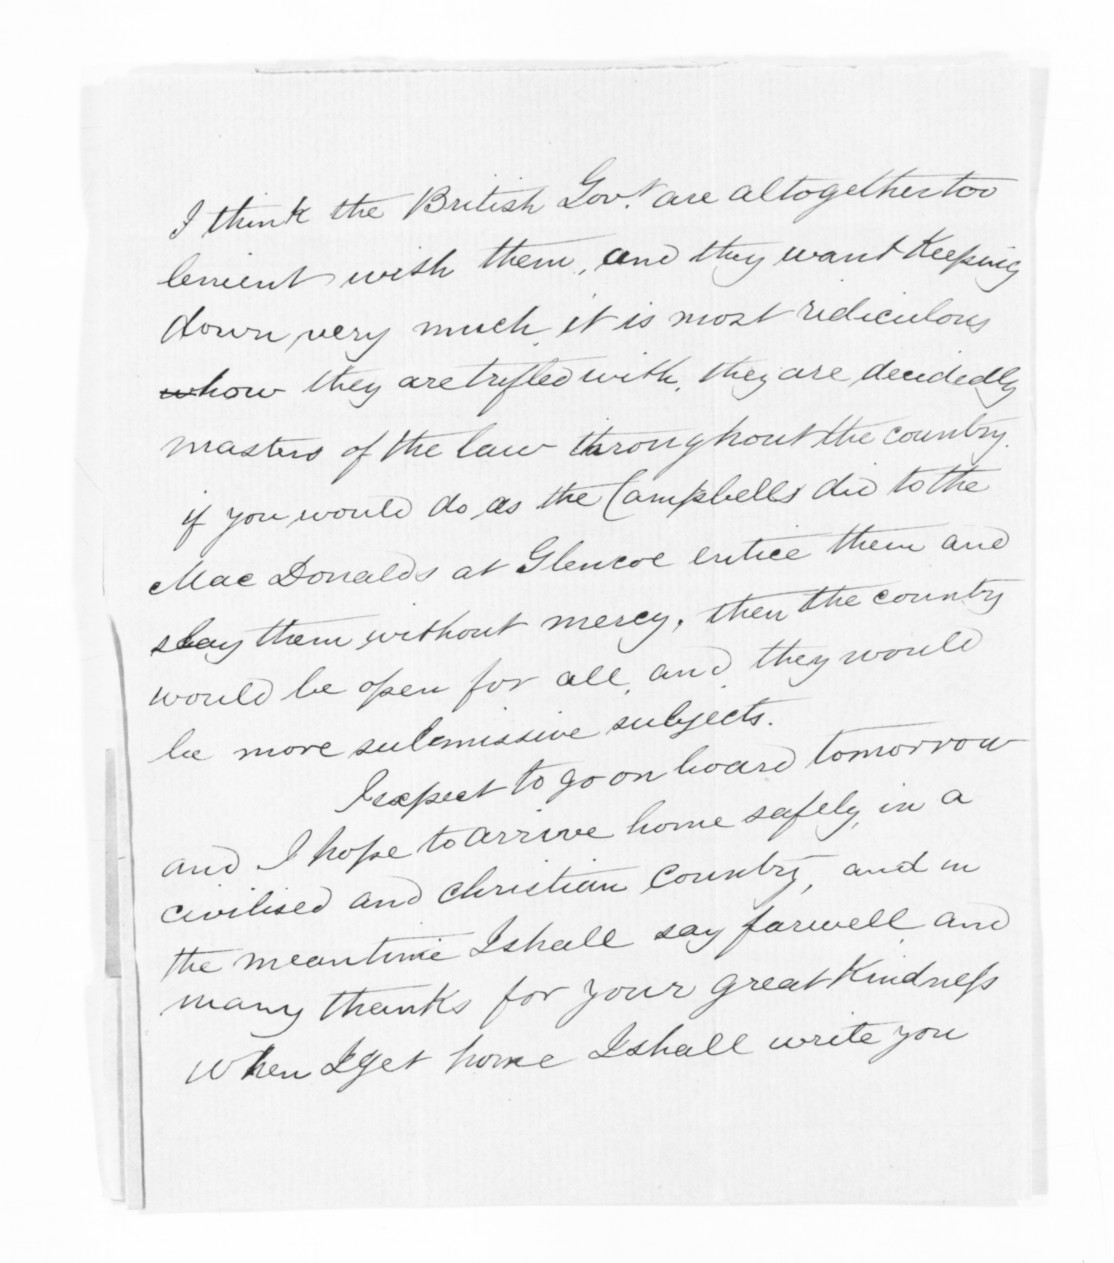 I think the British Gov.t are altogether too
lenient with them, and they want Keeping
down, very much, it is most ridiculous
how they are trifled with, they are, decidedly
masters of the law throughout the country.
if you would do, as the Campbells did to the
Mac Donalds at Glencoe entice them and
slay them without mercy, then the country
would be open for all, and they would
be more submissive subjects.
I expect to go on board tomorrow
and I hope to arrive home safely, in a
civilised and christian country, and in
the meantime I shall say farwell and
many thanks for your great Kindness
When I get home I shall write you